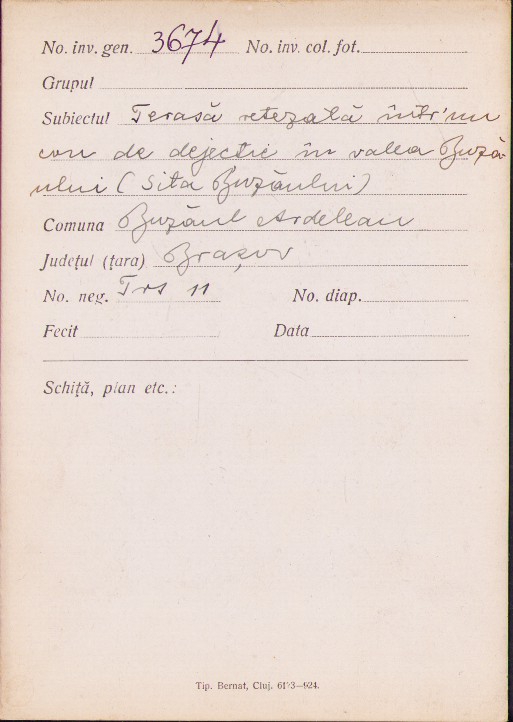 No. inv. gen. 3674 No. inv. col. fot.
Grupul
Subiectul Terasă retezată într'un
con de dejecție în valea Buză-
ului (Sita Buzăului)
Comuna Buzăul Ardelean
Județul (țara) Brașov
No. neg. Trs 11 No. diap.
Fecit Data
Schiță, plan etc.:
Tip. Bernat, Cluj.